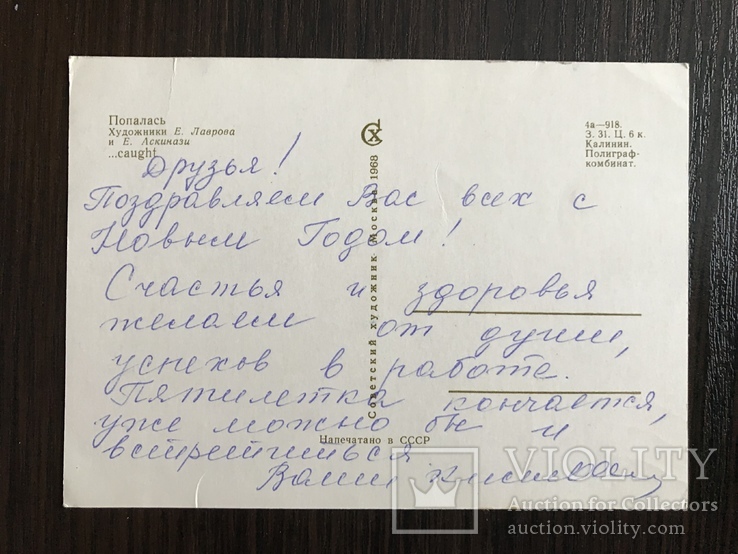 Попалась
Художники Е. Лаврова
и Е. Аскинази
...caught
СХ
4а—918.
З. 31. Ц. 6 к.
Калинин.
Полиграф-
комбинат.
Друзья!
Поздравляем Вас всех с
Новым Годом!
Счастья и здоровья
желаем от души,
успехов в работе.
Пятилетка кончается,
уже можно бы и
встретиться
Ваши
Советский художник Москва 1968
Напечатано в СССР
VIOLITY
Auction for Collectors
auction.violity.com